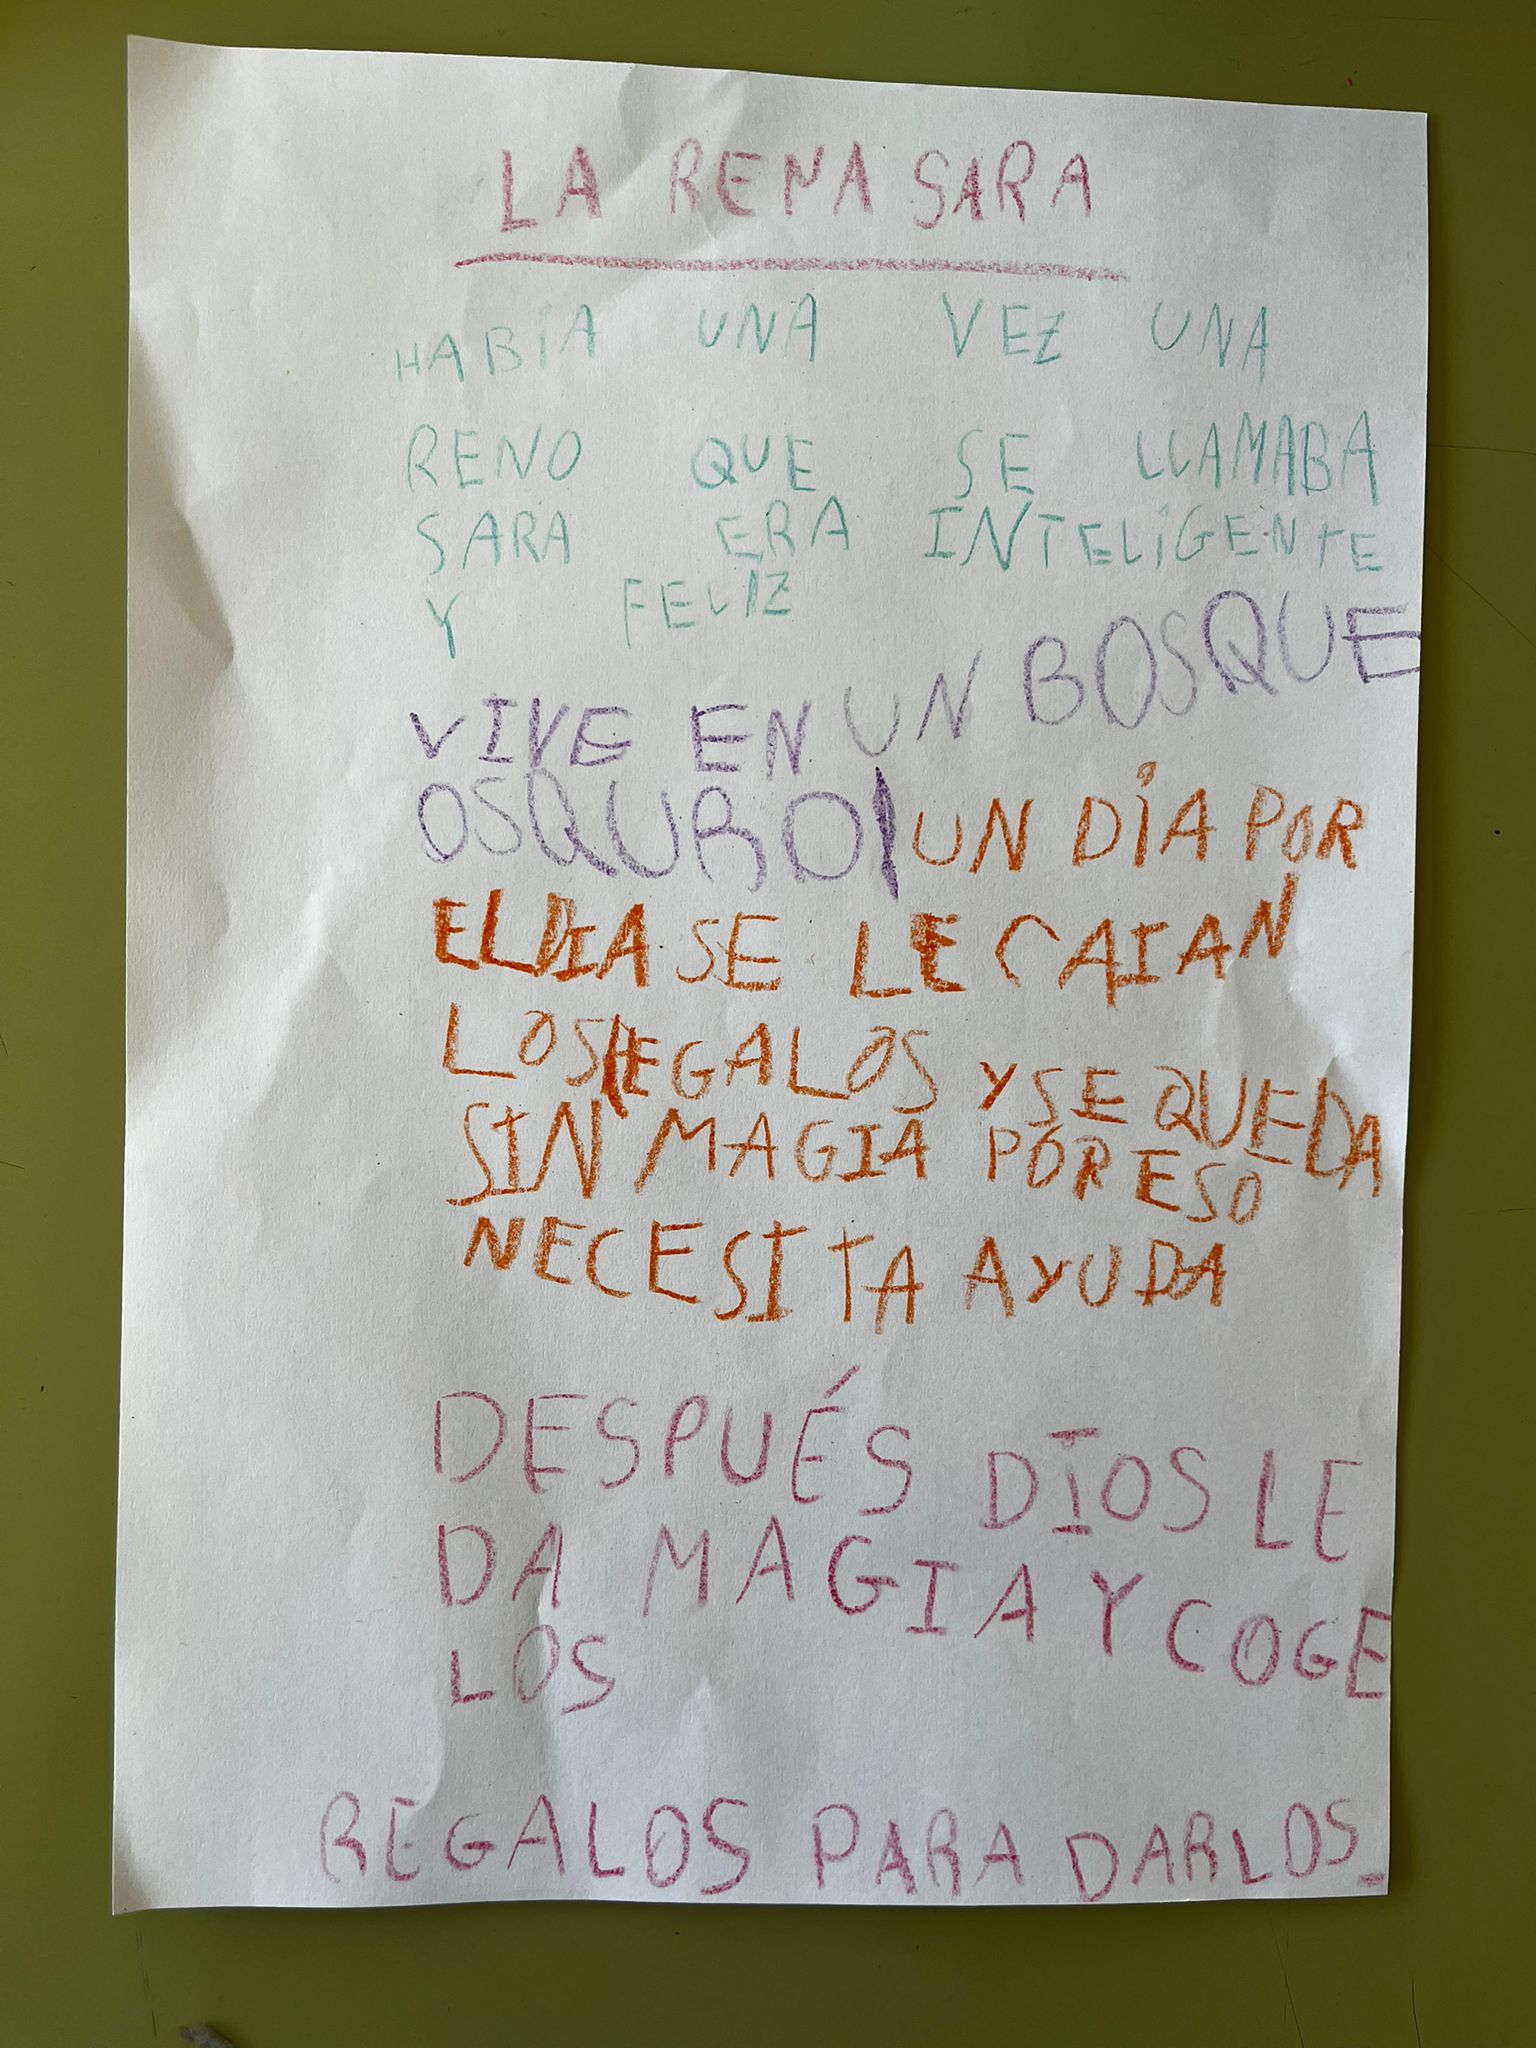 LA RENA SARA
HABÍA UNA VEZ UNA
RENO QUE SE LLAMABA
SARA ERA INTELIGENTE
Y FELIZ
VIVE EN UN BOSQUE
OSQURO UN DÍA POR
EL DIA SE LE CAIAN
LOS REGALOS Y SE QUEDA
SIN MAGIA POR ESO
NECESITA AYUDA
DESPUÉS DIOS LE
DA MAGIA Y COGE
LOS
REGALOS PARA DARLOS